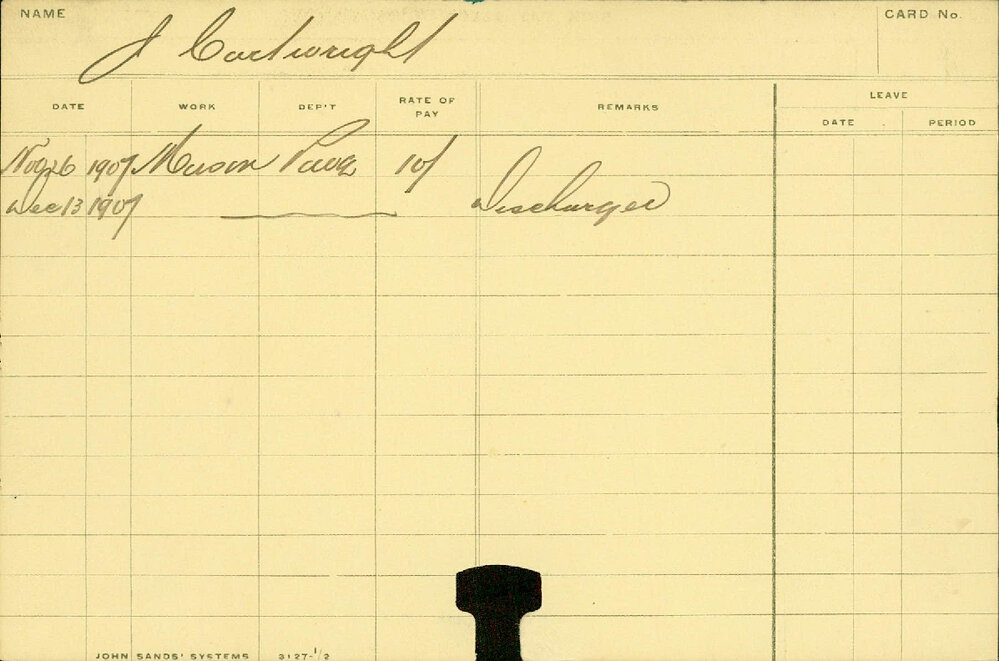 NAME
CARD No.
J Cartwright
DATE WORK DEP'T RATE OF PAY REMARKS LEAVE
DATE PERIOD
26 1907 Mason 10/
Dec 13 1907 Discharged
JOHN SANDS' SYSTEMS 3127-1/2